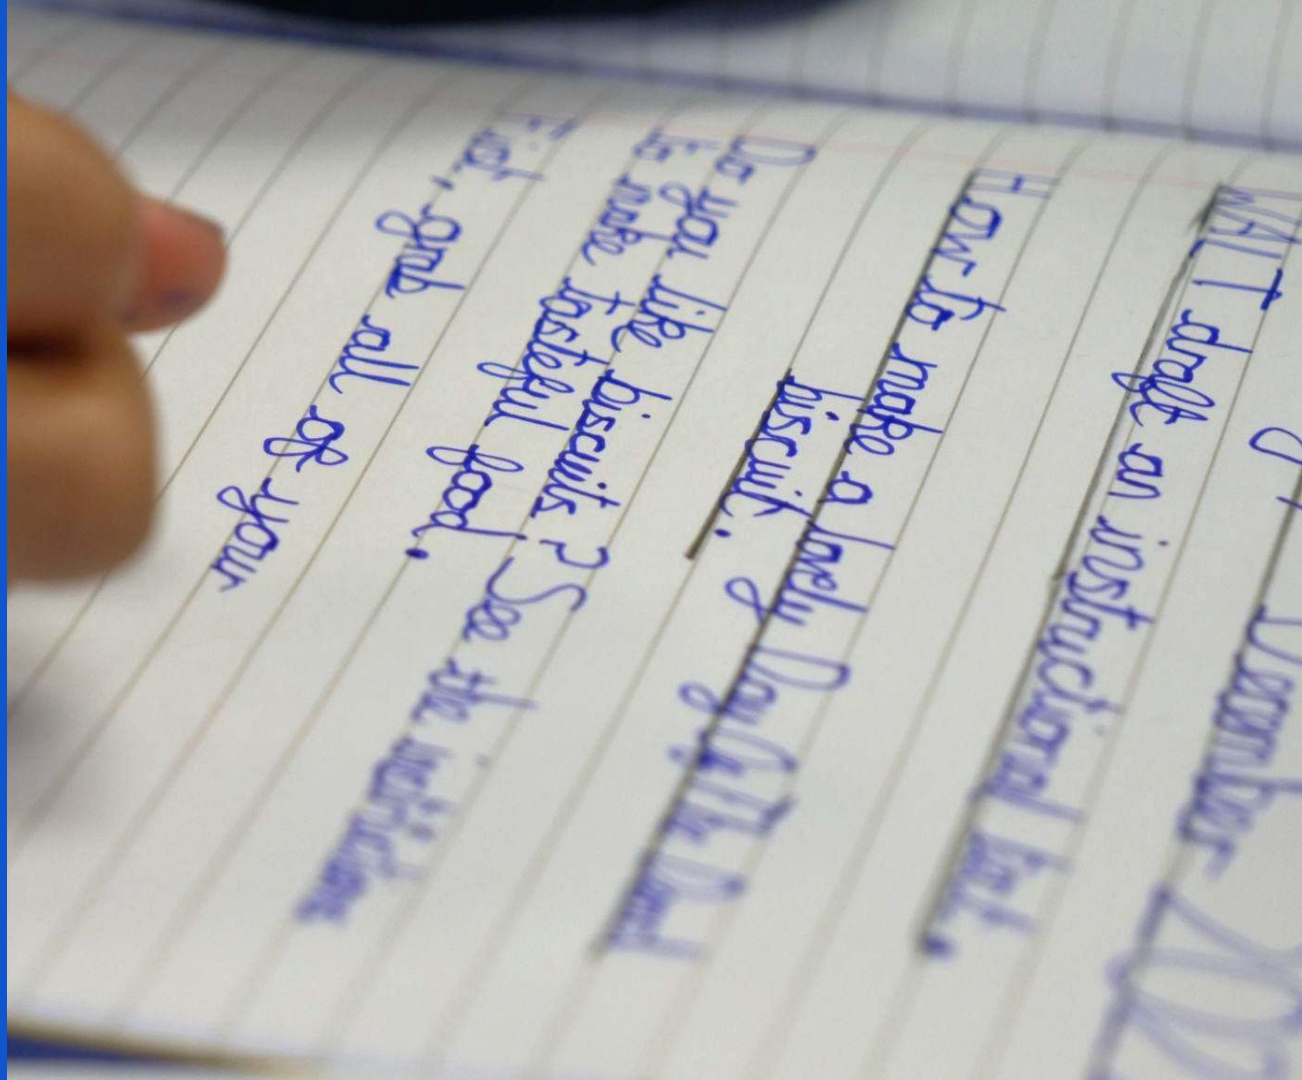 December 202
WALT draft an instructional text.
How to make a lovely Day of The Dead
biscuit.
Do you like biscuits? See the instructions
to make tasteful food.
First, grab all of your